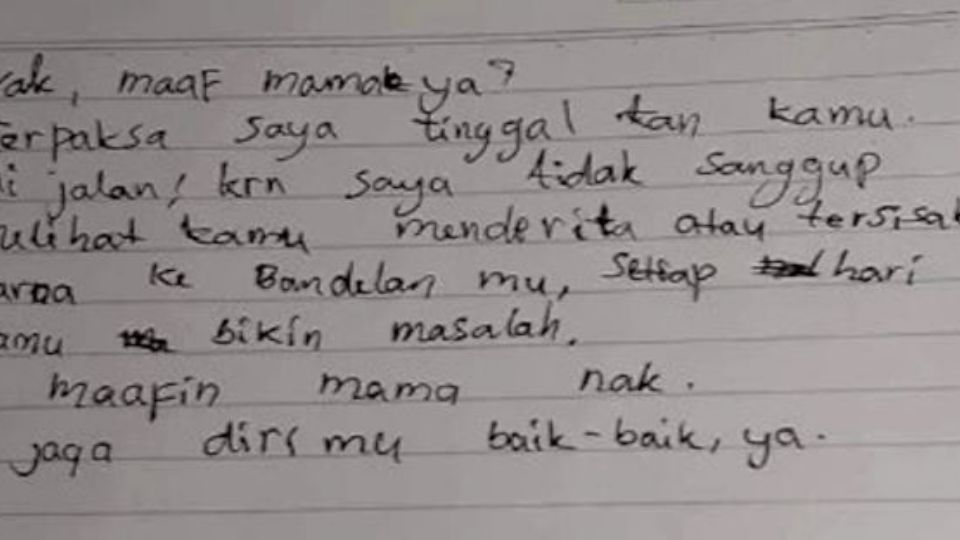 ak, maaf mamak ya?
erpaksa saya tinggal kan kamu.
i jalan, krn saya tidak sanggup
lihat kamu menderita atau tersisak
ke Bandelan mu, setiap hari
amu bikin masalah.
maafin mama nak.
jaga diri mu baik-baik, ya.